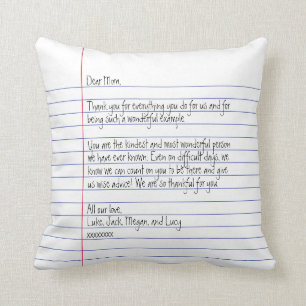 Dear Mom,
Thank you for everything you do for us and for
being such a wonderful example
You are the kindest and most wonderful person
we have ever known. Even on difficult days, we
know we can count on you to be there and give
us wise advice! We are so thankful for you
All our love,
Luke, Jack, Megan, and Lucy
xxxxxxxxx